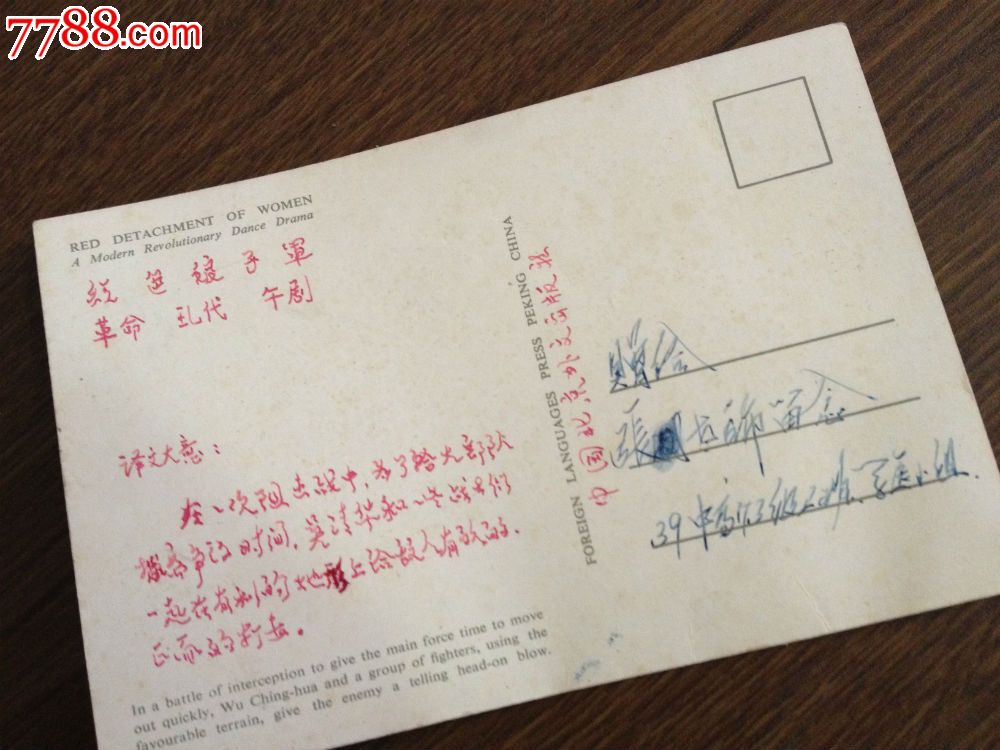 7788.com
RED DETACHMENT OF WOMEN
A Modern Revolutionary Dance Drama
红色娘子軍
革命 现代 午剧
译文大意:
在一次阻击战中,为了给大部队
争取时间,吴清华和一些战士们
一起在有利的地形上给敌人有力的
正面的打击。
In a battle of interception to give the main force time to move
out quickly, Wu Ching-hua and a group of fighters, using the
favourable terrain, give the enemy a telling head-on blow.
FOREIGN LANGUAGES PRESS PEKING CHINA
中国北京外文出版社
贈给
張 老师留念
39中 小组